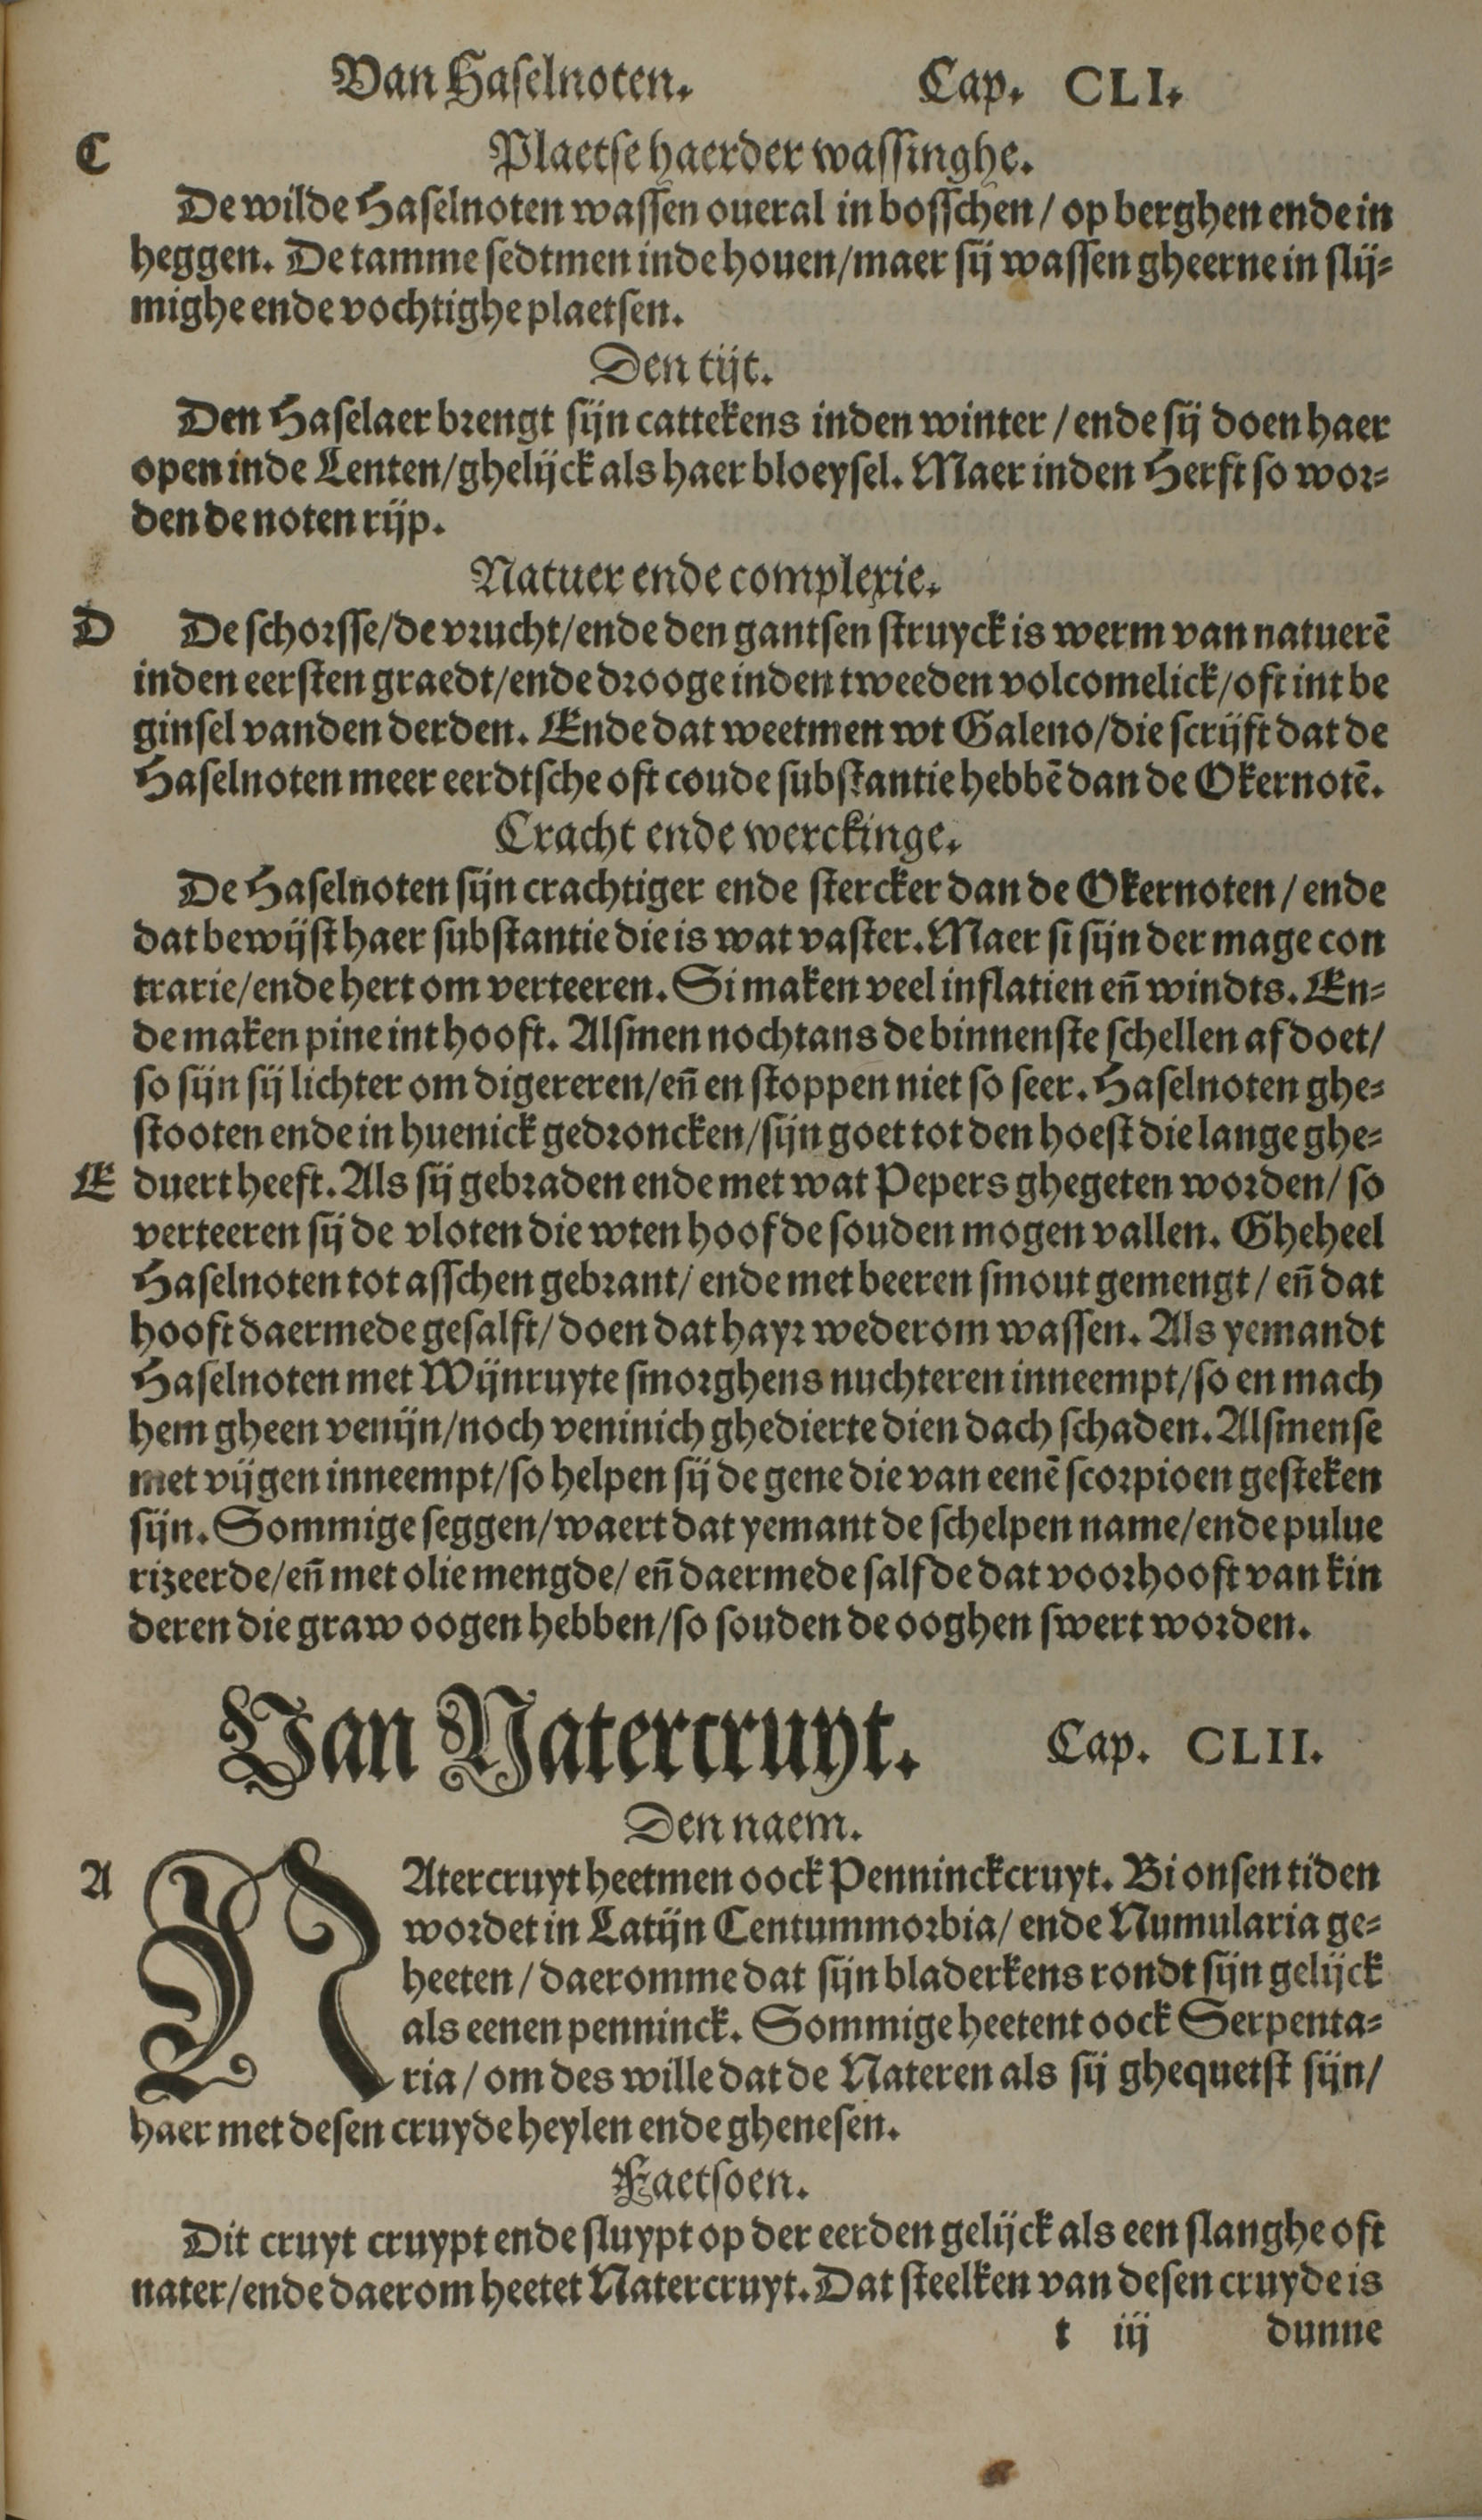 Van Haselnoten. Cap. CLI.
C Plaetse haerder wassinghe.
De wilde Haselnoten wassen oueral in bosschen / op berghen ende in
heggen. De tamme sedtmen inde houen/maer sij wassen gheerne in slij⸗
mighe ende vochtighe plaetsen.
Den tijt.
Den Haselaer brengt sijn cattekens inden winter / ende sij doen haer
open inde Lenten/ghelijck als haer bloeysel. Maer inden Herfst so wor⸗
den de noten rijp.
Natuer ende complexie.
D De schorsse/de vrucht/ende den gantsen struyck is werm van natuerē
inden eersten graedt/ende drooge inden tweeden volcomelick/oft int be
ginsel vanden derden. Ende dat weetmen wt Galeno/die scrijft dat de
Haselnoten meer eerdtsche oft coude substantie hebbē dan de Okernotē.
Cracht ende werckinge.
De Haselnoten sijn crachtiger ende stercker dan de Okernoten / ende
dat bewijst haer substantie die is wat vaster. Maer si sijn der mage con
trarie/ende hert om verteeren. Si maken veel inflatien eñ windts. En⸗
de maken pine int hooft. Alsmen nochtans de binnenste schellen af doet/
so sijn sij lichter om digereren/eñ en stoppen niet so seer. Haselnoten ghe⸗
stooten ende in huenick gedroncken/sijn goet tot den hoest die lange ghe⸗
E duert heeft. Als sij gebraden ende met wat Pepers ghegeten worden/ so
verteeren sij de vloten die wten hoofde souden mogen vallen. Gheheel
Haselnoten tot asschen gebrant/ ende met beeren smout gemengt / eñ dat
hooft daermede gesalft/ doen dat hayr wederom wassen. Als yemandt
Haselnoten met Wijnruyte smorghens nuchteren inneempt/so en mach
hem gheen venijn/noch veninich ghedierte dien dach schaden. Alsmense
met vijgen inneempt/so helpen sij de gene die van eenē scorpioen gesteken
sijn. Sommige seggen/waert dat yemant de schelpen name/ende pulue
rizeerde/eñ met olie mengde/ eñ daermede salfde dat voorhooft van kin
deren die graw oogen hebben/so souden de ooghen swert worden.
Van Natercruyt. Cap. CLII.
Den naem.
A NAtercruyt heetmen oock Penninckcruyt. Bi onsen tiden
wordet in Latijn Centummorbia/ ende Numularia ge⸗
heeten / daeromme dat sijn bladerkens rondt sijn gelijck
als eenen penninck. Sommige heetent oock Serpenta⸗
ria / om des wille dat de Nateren als sij ghequetst sijn/
haer met desen cruyde heylen ende ghenesen.
Faetsoen.
Dit cruyt cruypt ende sluypt op der eerden gelijck als een slanghe oft
nater/ende daerom heetet Natercruyt. Dat steelken van desen cruyde is
t iij dunne